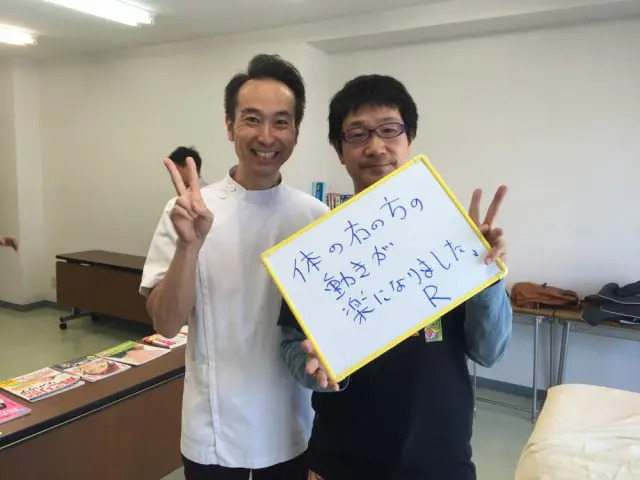 体の右の方の
動きが
楽になりました。
R